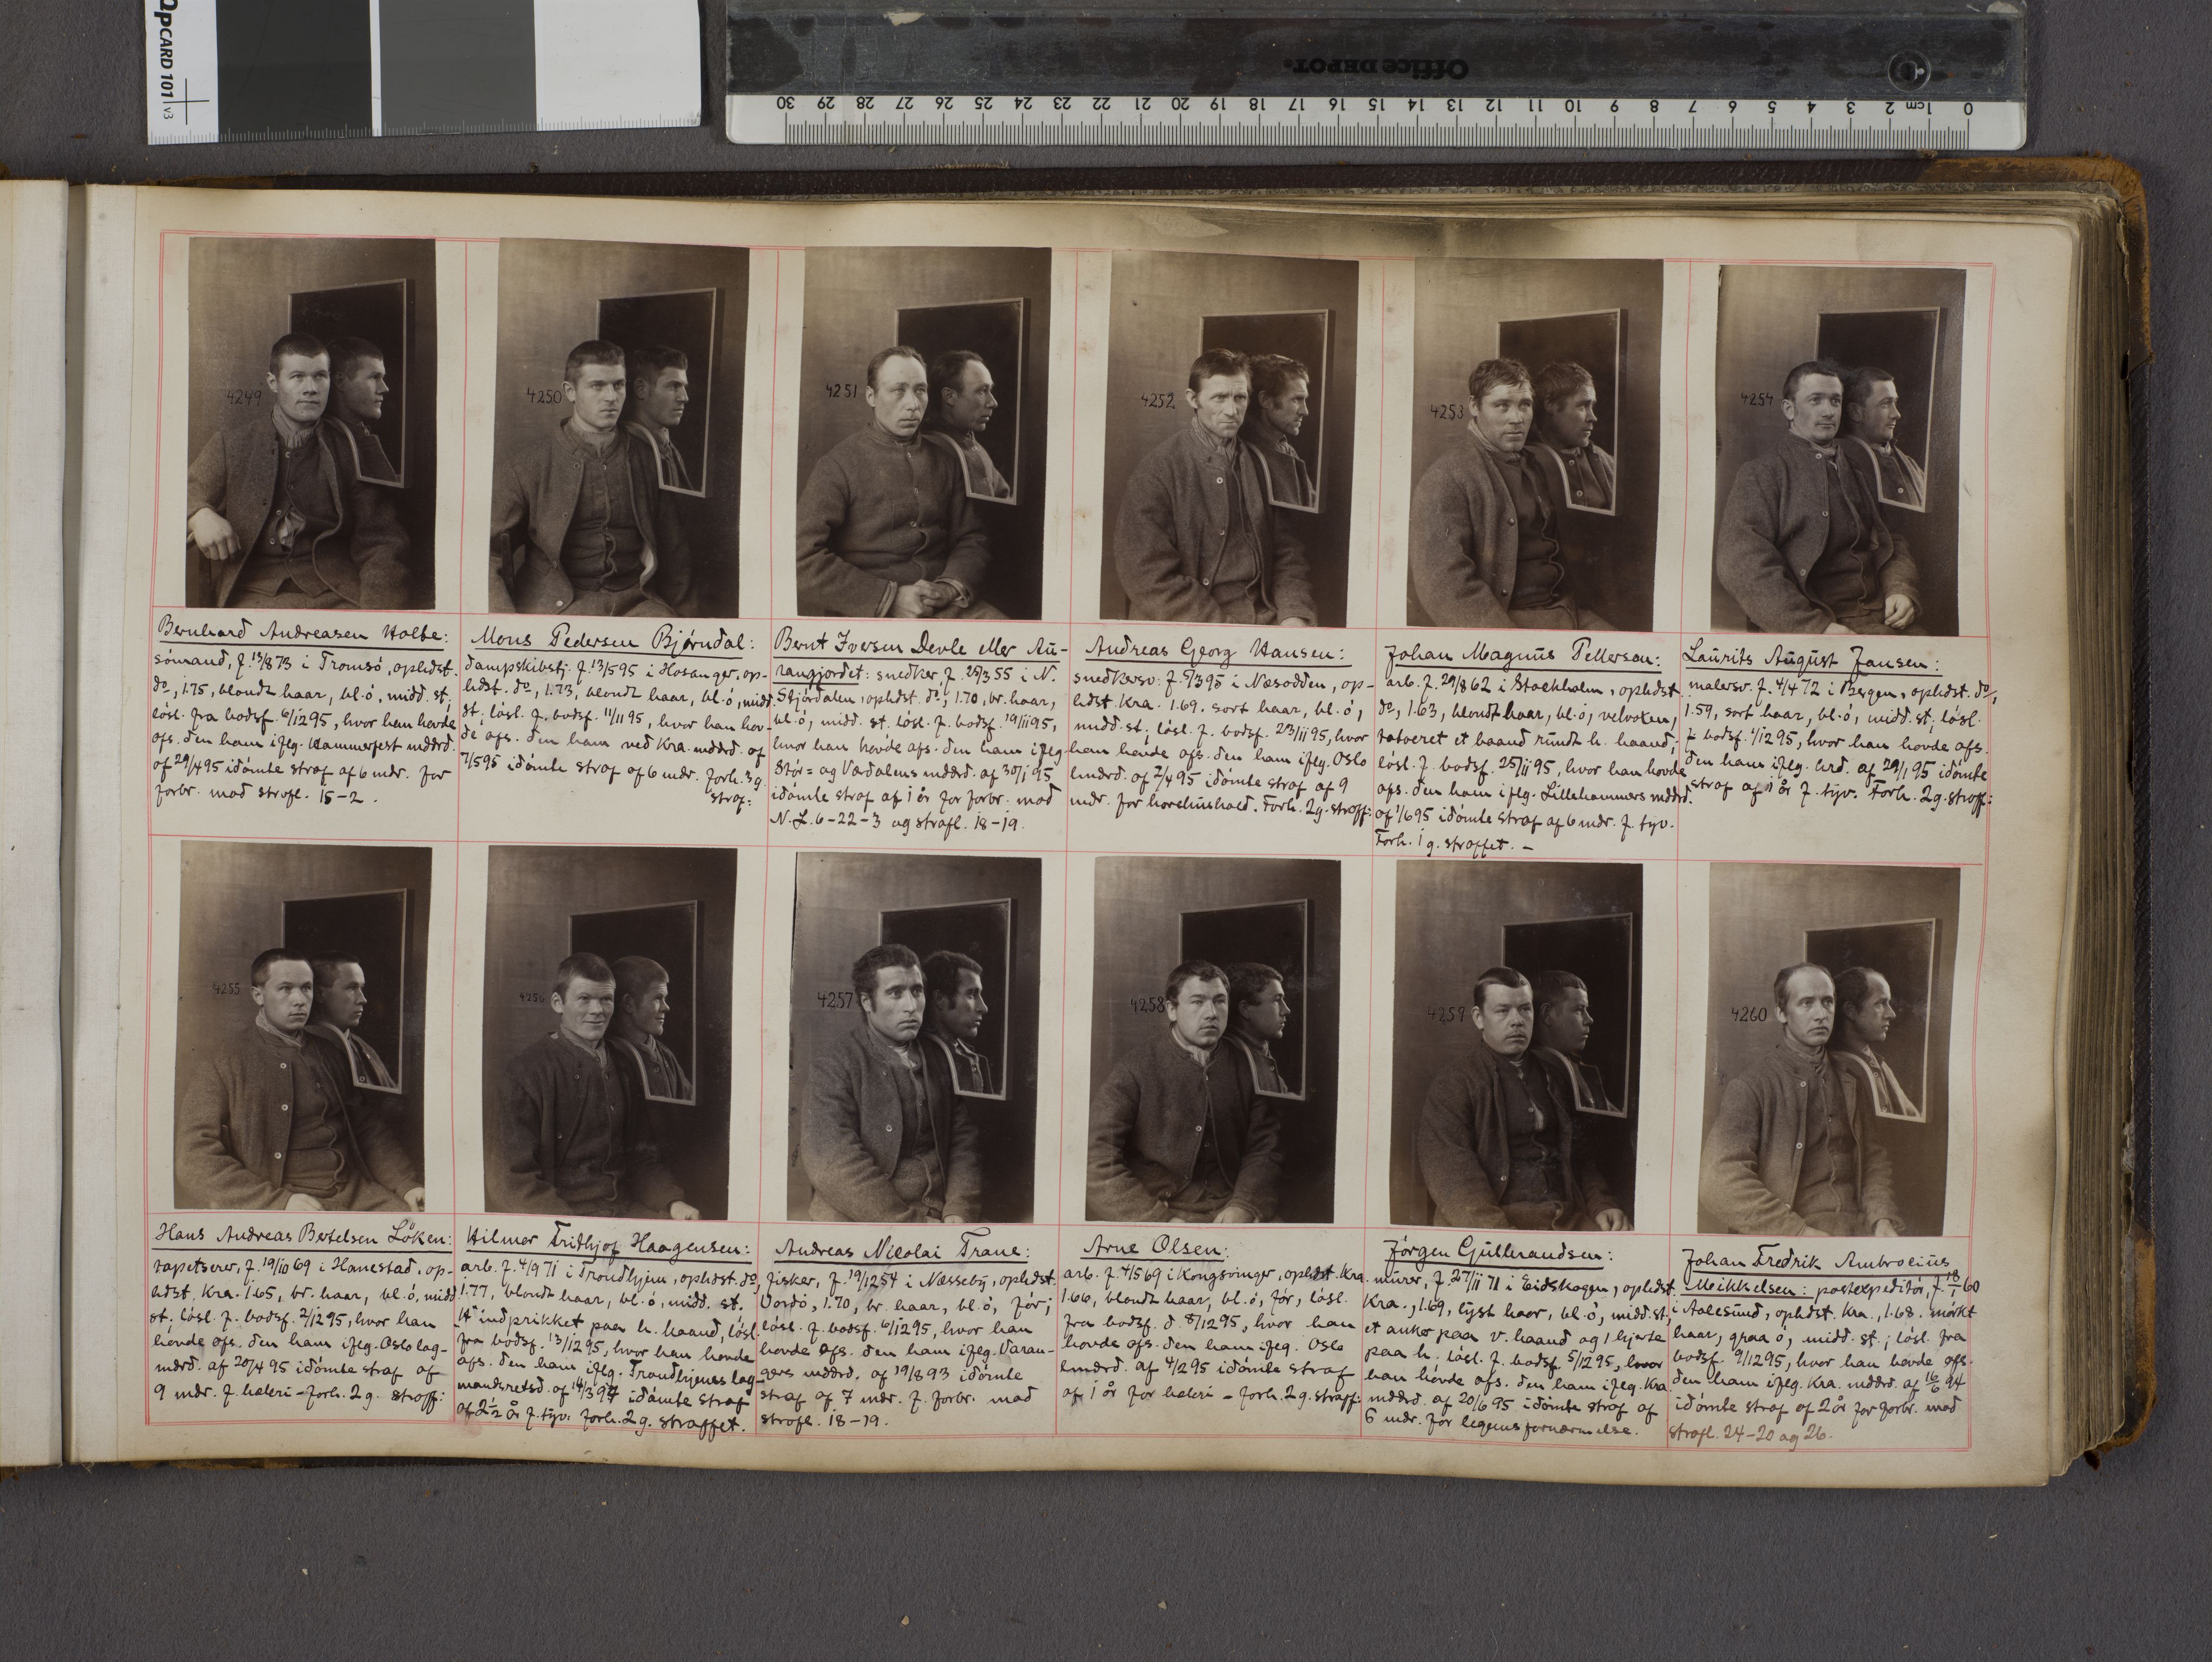 QPCARD 101 v3
Office DEPOT
30 29 28 27 26 25 24 23 22 21 20 19 18 17 16 15 14 13 12 11 10 9 8 7 6 5 4 3 2 cm 1 0
4249
4250
4251
4252
4253
4254
Bernhard Andreasen Holbe:
sómand, f. 13/8 73 i Tromsó, ophdst.
do, 1.75, blondt haar, bl. ó, midd. st,
lósl. fra bodsf. 6/12 95, hvor han hovde
afs. den ham iflg. Hammerfest mddrd.
af 29/4 95 idómte straf af 6 mdr. for
forbr. mod strafl. 15-2.
Mons Pedersen Bjørndal:
dampskibstj. f. 13/5 95 i Hosanger, op-
hdst. do, 1.73, blondt haar, bl. ó, midd
st; lósl. f. bodsf. 11/11 95, hvor han hov-
de afs. den ham ved Kra. mddrd. af
7/5 95 idómte straf af 6 mdr. forh. 3 g.
straf:
Bernt Iversen Devle eller Au-
rangjordet: snedker, f. 25/3 55 i N.
Stjórdalen, ophdst. do, 1.70, br. haar,
bl. ó, midd. st. lósl. f. bodsf. 19/11 95,
hvor han hovde afs. den ham iflg
Stór= og Værdalens mddrd. af 30/1 95
idómte straf af 1 år for forbr. mod
N. L. 6-22-3 og strafl. 18-19.
Andreas Georg Hansen:
snedkersv. f. 5/3 95 i Næsodden, op-
hdst. Kra. 1.69. sort haar, bl. ó,
midd. st. lósl. f. bodsf. 23/11 95, hvor
han hovde afs. den ham iflg. Oslo
lmdrd. af 2/4 95 idómte straf af 9
mdr. for horehushold. Forh. 2 g. straff:
Johan Magnus Petterson:
arb. f. 29/8 62 i Stockholm, ophdst
do, 1.63, blondt haar, bl. ó, velvoxen,
tatoveret et baand rundt h. haand;
lósl. f. bodsf. 25/11 95, hvor han hovde
afs. den ham iflg. Lillehammers mddrd.
af 1/6 95 idómte straf af 6 mdr. f. tyv.
Forh. 1 g. straffet. –
Laurits August Jansen:
malersv. f. 4/4 72 i Bergen, ophdst. do,
1.59, sort haar, bl. ó, midd. st; lósl.
f. bodsf. 1/12 95, hvor han hovde afs.
den ham iflg. lrd. af 29/1 95 idómte
straf af 1 år f. tyv. Forh. 2 g. straff:
4255
4256
4257
4258
4259
4260
Hans Andreas Bertelsen Löken:
tapetserer, f. 19/10 69 i Hanestad, op-
hdst. Kra. 1.65, br. haar, bl. ó, midd
st; lósl. f. bodsf. 2/12 95, hvor han
hovde afs. den ham iflg. Oslo lag-
mdrd. af 20/4 95 idómte straf af
9 mdr. f. hæleri - forh. 2 g. straff:
Hilmer Fridhjof Haagensen:
arb. f. 4/9 71 i Trondhjem, ophdst. do,
1.77, blondt haar, bl. ó, midd. st.
"H" indprikket paa h. haand, lósl.
fra bodsf. 13/12 95, hvor han hovde
afs. den ham iflg. Trondhjems lag-
mandsretsd. af 14/3 94 idómte straf
af 2 1/2 år f. tyv. forh. 2 g. straffet.
Andreas Nicolai Trane:
fisker, f. 19/12 54 i Næsseby, ophdst.
Vordó, 1.70, br. haar, bl. ó, fór;
lósl. f. bodsf. 6/12 95, hvor han
hovde afs. den ham iflg. Varan-
gers mddrd. af 19/8 93 idómte
straf af 7 mdr. f. forbr. mod
strafl. 18-19.
Arne Olsen:
arb. f. 4/5 69 i Kongsvinger, ophdst. Kra
1.66, blondt haar, bl. ó, fór, lósl.
fra bodsf. d. 8/12 95, hvor han
hovde afs. den ham iflg. Oslo
lmdrd. af 4/2 95 idómte straf
af 1 år for hæleri - forh. 2 g. straff:
Jórgen Gulbrandsen:
murer, f. 27/11 71 i Eidskogen, ophdst.
Kra., 1.69, lyst haar, bl. ó, midd. st,
et anker paa v. haand og 1 hjerte
paa h. lósl. f. bodsf. 5/12 95, hvor
han hovde afs. den ham iflg. Kra.
mddrd. af 20/6 95 idómte straf af
6 mdr. for legemsfornærmelse.
Johan Fredrik Ambrocius
Meikkelsen: postexpeditór, f. 18/1 60
i Aalesund, ophdst. Kra., 1.68. mórkt
haar, graa ó, midd. st.; lósl. fra
bodsf. 9/12 95, hvor han hovde afs.
den ham iflg. Kra. mddrd. af 16/6 94
idómte straf af 2 år for forbr. mod
strafl. 24-20 og 26.